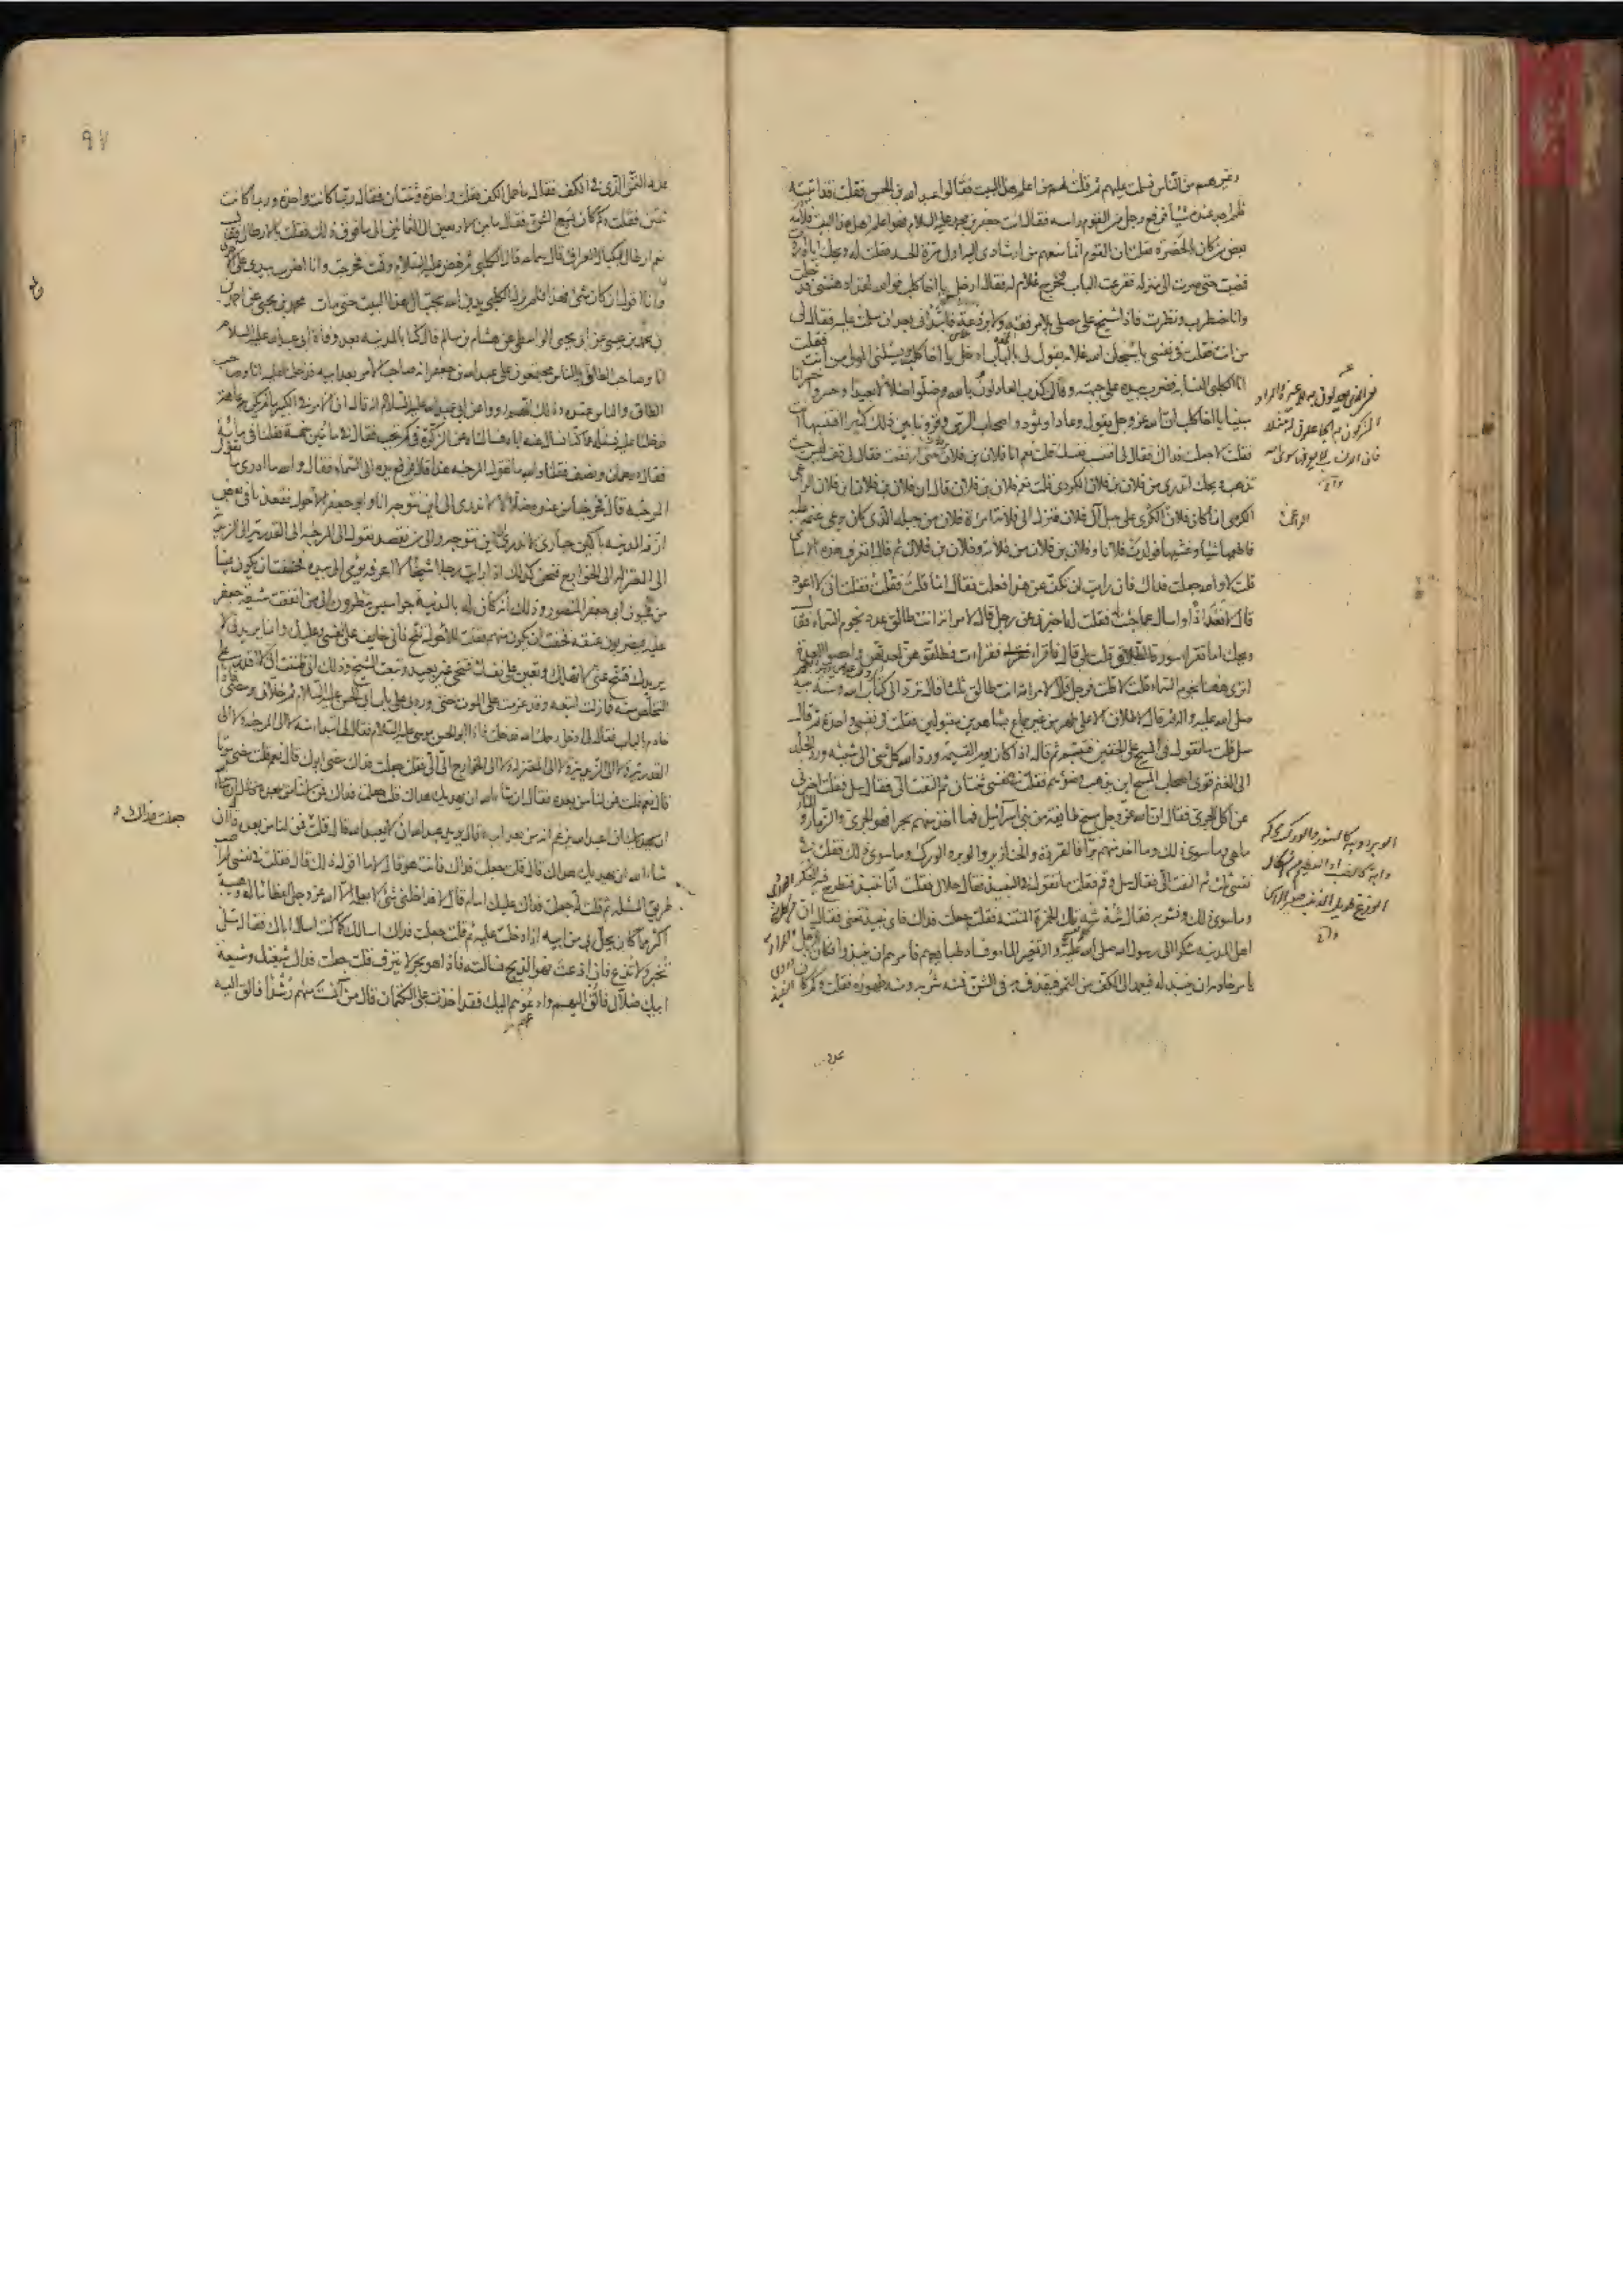 وغيرهم من الناس فسلمت عليهم ثم قلت لهم من اعلم اهل البيت فقالوا عبد الله بن الحسن فقلت قد اتيته
فلم اجد عنده شيئا فرفع رجل من القوم راسه فقال ائت جعفر بن محمد عليه السلام فهو اعلم اهل هذا البيت فلامه
بعض من كان بالحضرة فقلت ان القوم انما منعهم من ارشادى اليه اول مرة الحسد فقلت له ويحك اياه اردت
فمضيت حتى صرت الى منزله فقرعت الباب فخرج غلام له فقال ادخل يا اخا كلب فوالله لقد ادهشنى فدخلت
وانا مضطرب ونظرت فاذا شيخ على مصلى بلا مرفقة ولا بردعة فابتدأنى بعد ان سلمت عليه فقال لى
من انت فقلت فى نفسى يا سبحان الله غلامه يقول لى بالباب ادخل يا اخا كلب ويسئلنى المولى من انت فقلت
انا الكلبى النسابة فضرب بيده على جبهته وقال كذب العادلون بالله وضلوا ضلالا بعيدا وخسروا خسرانا
مبينا يا اخا كلب ان الله عز وجل يقول وعادا وثمود واصحاب الرس وقرونا بين ذلك كثيرا افتنسبها انت
فقلت لا جعلت فداك فقال لى افتنسب نفسك قلت نعم انا فلان بن فلان بن فلان حتى ارتفعت فقال لى قف ليس حيث
تذهب ويحك اتدرى من فلان بن فلان الكردى قلت نعم فلان بن فلان قال ان فلان بن فلان ابن فلان الراعى
الكردى انما كان فلان الكردى على جبل آل فلان فنزل الى فلانة امرأة فلان من جبله الذى كان يرعى غنمه عليه
فاطعمها شيئا وغشيها فولدت فلانا وفلان بن فلان من فلانة وفلان بن فلان ثم قال اتعرف هذه الاسامى
قلت لا والله جعلت فداك فان رايت ان تكف عن هذا فعلت فقال انما قلت فقلت فقلت انى لا اعود
قال لا نعود اذا واسال عما جئت له فقلت له اخبرنى عن رجل قال لامراته انت طالق عدد نجوم السماء فقال
ويحك اما تقرأ سورة الطلاق قلت بلى قال فاقرأ فقرات فطلقوهن لعدتهن واحصوا العدة
اترى ههنا نجوم السماء قلت لا قلت فرجل قال لامراته انت طالق ثلثا قال ترد الى كتاب الله وسنة نبيه
صلى الله عليه واله ثم قال لا طلاق الا على طهر من غير جماع بشاهدين مقبولين فقلت فى نفسى واحدة ثم قال
سل قلت ما تقول فى المسح على الخفين فتبسم ثم قال اذا كان يوم القيمة ورد الله كل شئ الى شيئه ورد الجلد
الى الغنم فترى اصحاب المسح اين يذهب وضوئهم فقلت فى نفسى ثنتان ثم التفت الى فقال سل فقلت اخبرنى
عن اكل الجرى فقال ان الله عز وجل مسخ طائفة من بنى اسرائيل فما اخذ منهم بحرا فهو الجرى والزمار و
ماهى وما سوى ذلك وما اخذ منهم برا فالقردة والخنازير والوبر والورك وما سوى ذلك فقلت فى
نفسى ثلث ثم التفت الى فقال سل وقم فقلت ما تقول فى النبيذ فقال حلال فقلت انا ننبذ فنطرح فيه العكر
وما سوى ذلك ونشربه فقال شه شه تلك الخمرة المنتنة فقلت جعلت فداك فاى نبيذ تعنى فقال ان
اهل المدينة شكوا الى رسول الله صلى الله عليه واله تغيير الماء وفساد طبائعهم فامرهم ان ينبذوا فكان الرجل
يامر خادمه ان ينبذ له فيعمد الى الكف من التمر فيقذف به فى الشن فمنه شربه ومنه طهوره فقلت وكم كان
عدد
الراعى
عدد التمر الذى فى الكف فقال ما حمل الكف فقلت واحدة وثنتان فقال ربما كانت واحدة وربما كانت
ثنتين فقلت وكم كان يسع الشن فقال ما بين الاربعين الى الثمانين الى ما فوق ذلك فقلت بالارطال فقال
نعم ارطال بمكيال العراق قال سماعة قال الكلبى ثم نهض عليه السلام وقمت فخرجت وانا اضرب بيدى على الاخرى
وانا اقول ان كان شئ فهذا فلم يزل الكلبى يدين الله بحب آل هذا البيت حتى مات محمد بن يحيى عن احمد
بن محمد بن عيسى عن ابى يحيى الواسطى عن هشام بن سالم قال كنا بالمدينة بعد وفاة ابى عبد الله عليه السلام
انا وصاحب الطاق والناس مجتمعون على عبد الله بن جعفر انه صاحب الامر بعد ابيه فدخلنا عليه انا وصاحب
الطاق والناس عنده وذلك انهم رووا عن ابى عبد الله عليه السلام انه قال ان الامر فى الكبير ما لم تكن به عاهة
فدخلنا عليه نسئله عما كنا نسال عنه اباه فسالناه عن الزكوة فى كم تجب فقال فى مائتين خمسة فقلنا فى مائة
فقال درهمان ونصف فقلنا والله ما تقول المرجئة هذا قال فرفع يده الى السماء فقال والله ما ادرى ما تقول
المرجئة قال فخرجنا من عنده ضلالا لا ندرى الى اين نتوجه انا وابو جعفر الاحول فقعدنا فى بعض
ازقة المدينة باكين حيارى لا ندرى الى اين نتوجه ولا من نقصد نقول الى المرجئة الى القدرية الى الزيدية
الى المعتزلة الى الخوارج فنحن كذلك اذ رايت رجلا شيخا لا اعرفه يومئ الى بيده فخفت ان يكون عينا
من عيون ابى جعفر المنصور وذلك انه كان له بالمدينة جواسيس ينظرون الى من اتفقت شيعة جعفر
عليه فيضربون عنقه فخفت ان يكون منهم فقلت للاحول تنح فانى خايف على نفسى وعليك وانما يريدنى لا
يريدك فتنح عنى لا تهلك وتعين على نفسك فتنحى غير بعيد وتبعت الشيخ وذلك انى ظننت انى لا اقدر على
التخلص منه فما زلت اتبعه وقد عزمت على الموت حتى ورد بى على باب ابى الحسن عليه السلام ثم خلانى ومضى فاذا
خادم بالباب فقال لى ادخل رحمك الله فدخلت فاذا ابو الحسن موسى عليه السلام فقال لى ابتداء منه لا الى المرجئة ولا الى
القدرية ولا الى الزيدية ولا الى المعتزلة ولا الى الخوارج الى الى فقلت جعلت فداك مضى ابوك قال نعم قلت مضى موتا
قال نعم قلت فمن لنا من بعده فقال ان شاء الله ان يهديك هداك قلت جعلت فداك
ان عبد الله يزعم انه من بعد ابيه قال يريد عبد الله ان لا يعبد الله قال قلت فمن لنا من بعده قال ان
شاء الله ان يهديك هداك قال قلت جعلت فداك فانت هو قال لا ما اقول ذلك قال فقلت فى نفسى لم اصب
طريق المسئلة ثم قلت له جعلت فداك عليك امام قال لا فداخلنى شئ لا يعلم الا الله عز وجل اعظاما له وهيبة
اكثر مما كان يحل بى من ابيه اذا دخلت عليه ثم قلت جعلت فداك اسالك كما كنت اسال اباك فقال سل
تخبر ولا تذع فان اذعت فهو الذبح فسالته فاذا هو بحر لا ينزف قلت جعلت فداك شيعتك وشيعة
ابيك ضلال فالقى اليهم وادعوهم اليك فقد اخذت على الكتمان قال من آنست منهم رشدا فالق اليه
جعلت فداك
٩٧